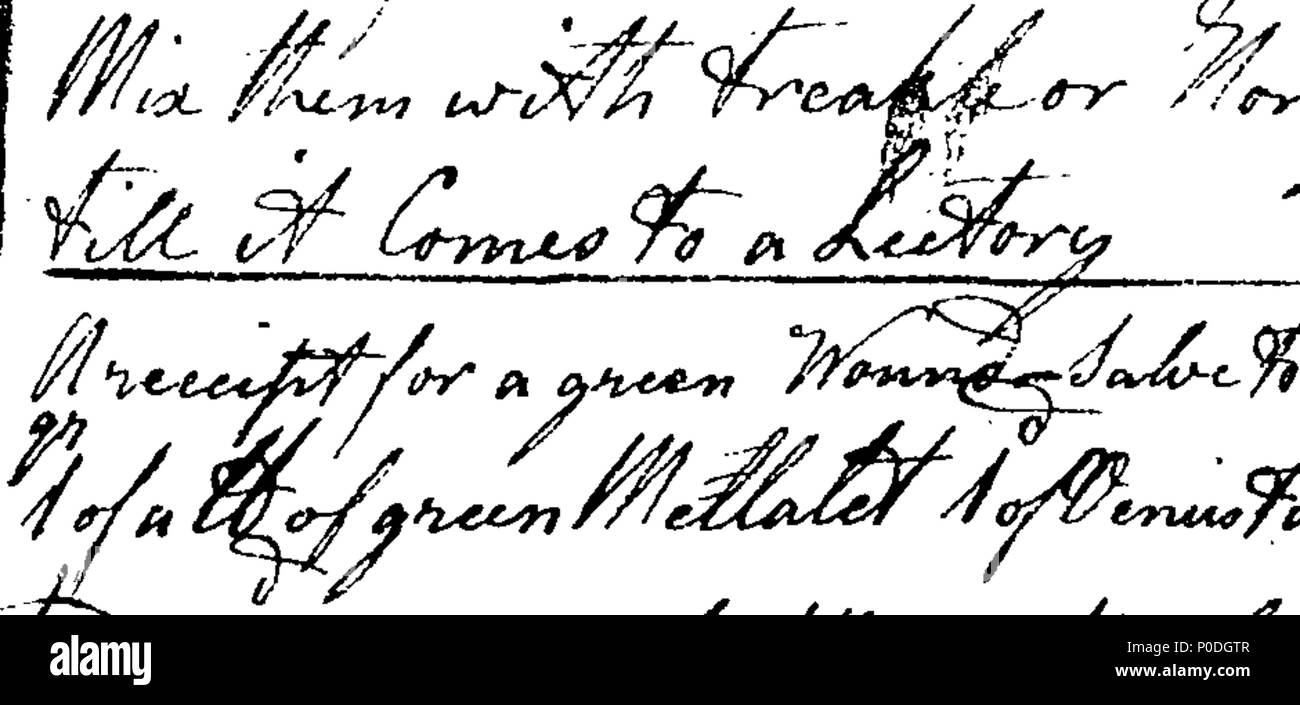 Mix them with treakle or Hon
till it Comes to a Lectory
A receipt for a green Wound Salve to
qr
1 of a lb of green Mellalet 1 of Venius Tu
alamy
Image ID: P0DGTR
www.alamy.com